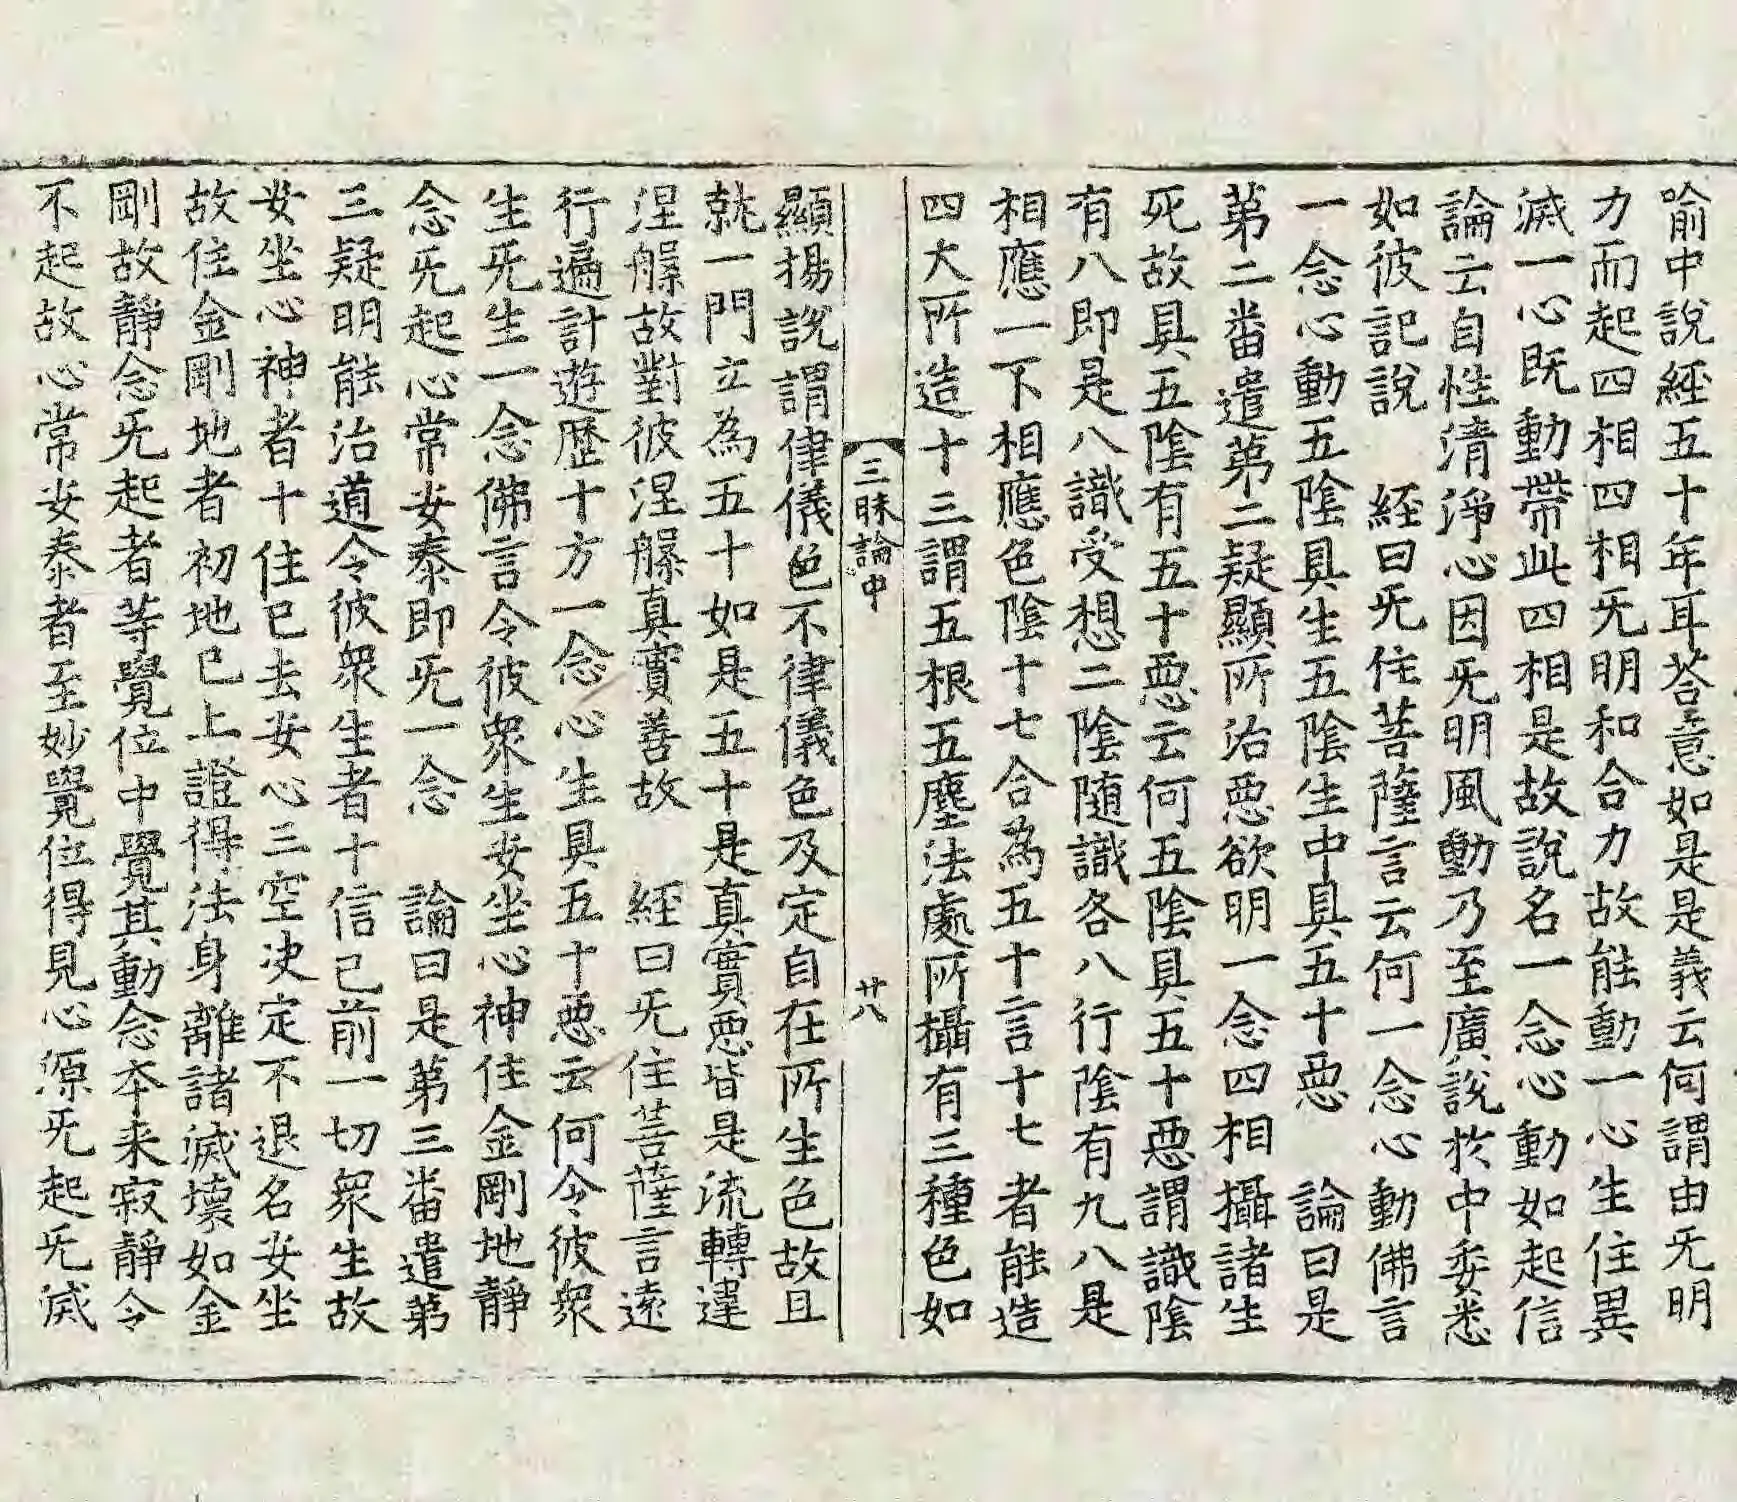 喻中說經五十年耳荅意如是是義云何謂由旡明
力而起四相四相旡明和合力故能動一心生住異
滅一心既動帶此四相是故說名一念心動如起信
論云自性清淨心因旡明風動乃至廣說於中委悉
如彼記說　經曰旡住菩薩言云何一念心動佛言
一念心動五陰具生五陰生中具五十惡　論曰是
第二番遣第二疑顯所治惡欲明一念四相攝諸生
死故具五陰有五十惡云何五陰具五十惡謂識陰
有八即是八識受想二陰隨識各八行陰有九八是
相應一下相應色陰十七合為五十言十七者能造
四大所造十三謂五根五塵法處所攝有三種色如
三昧論中　廿八
顯揚說謂律儀色不律儀色及定自在所生色故且
就一門立為五十如是五十是真實惡皆是流轉違
涅槃故對彼涅槃真實善故　經曰旡住菩薩言遠
行遍計遊歷十方一念心生具五十惡云何令彼衆
生旡生一念佛言令彼衆生安坐心神住金剛地靜
念旡起心常安泰即旡一念　論曰是第三番遣第
三疑明能治道令彼衆生者十信已前一切衆生故
安坐心神者十住已去安心三空決定不退名安坐
故住金剛地者初地已上證得法身離諸滅壞如金
剛故靜念旡起者等覺位中覺其動念本来寂靜令
不起故心常安泰者至妙覺位得見心源旡起旡滅